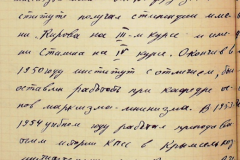 ституте получал стипендию име-
ни Кирова на III-м курсе и име-
ни Сталина на IV курсе. Окончив в
1950 году институт с отличием, был
оставлен работать при кафедре ос-
нов марксизма-ленинизма. В 1953-
1954 учебном году работал преподава-
телем истории КПСС в Крымском